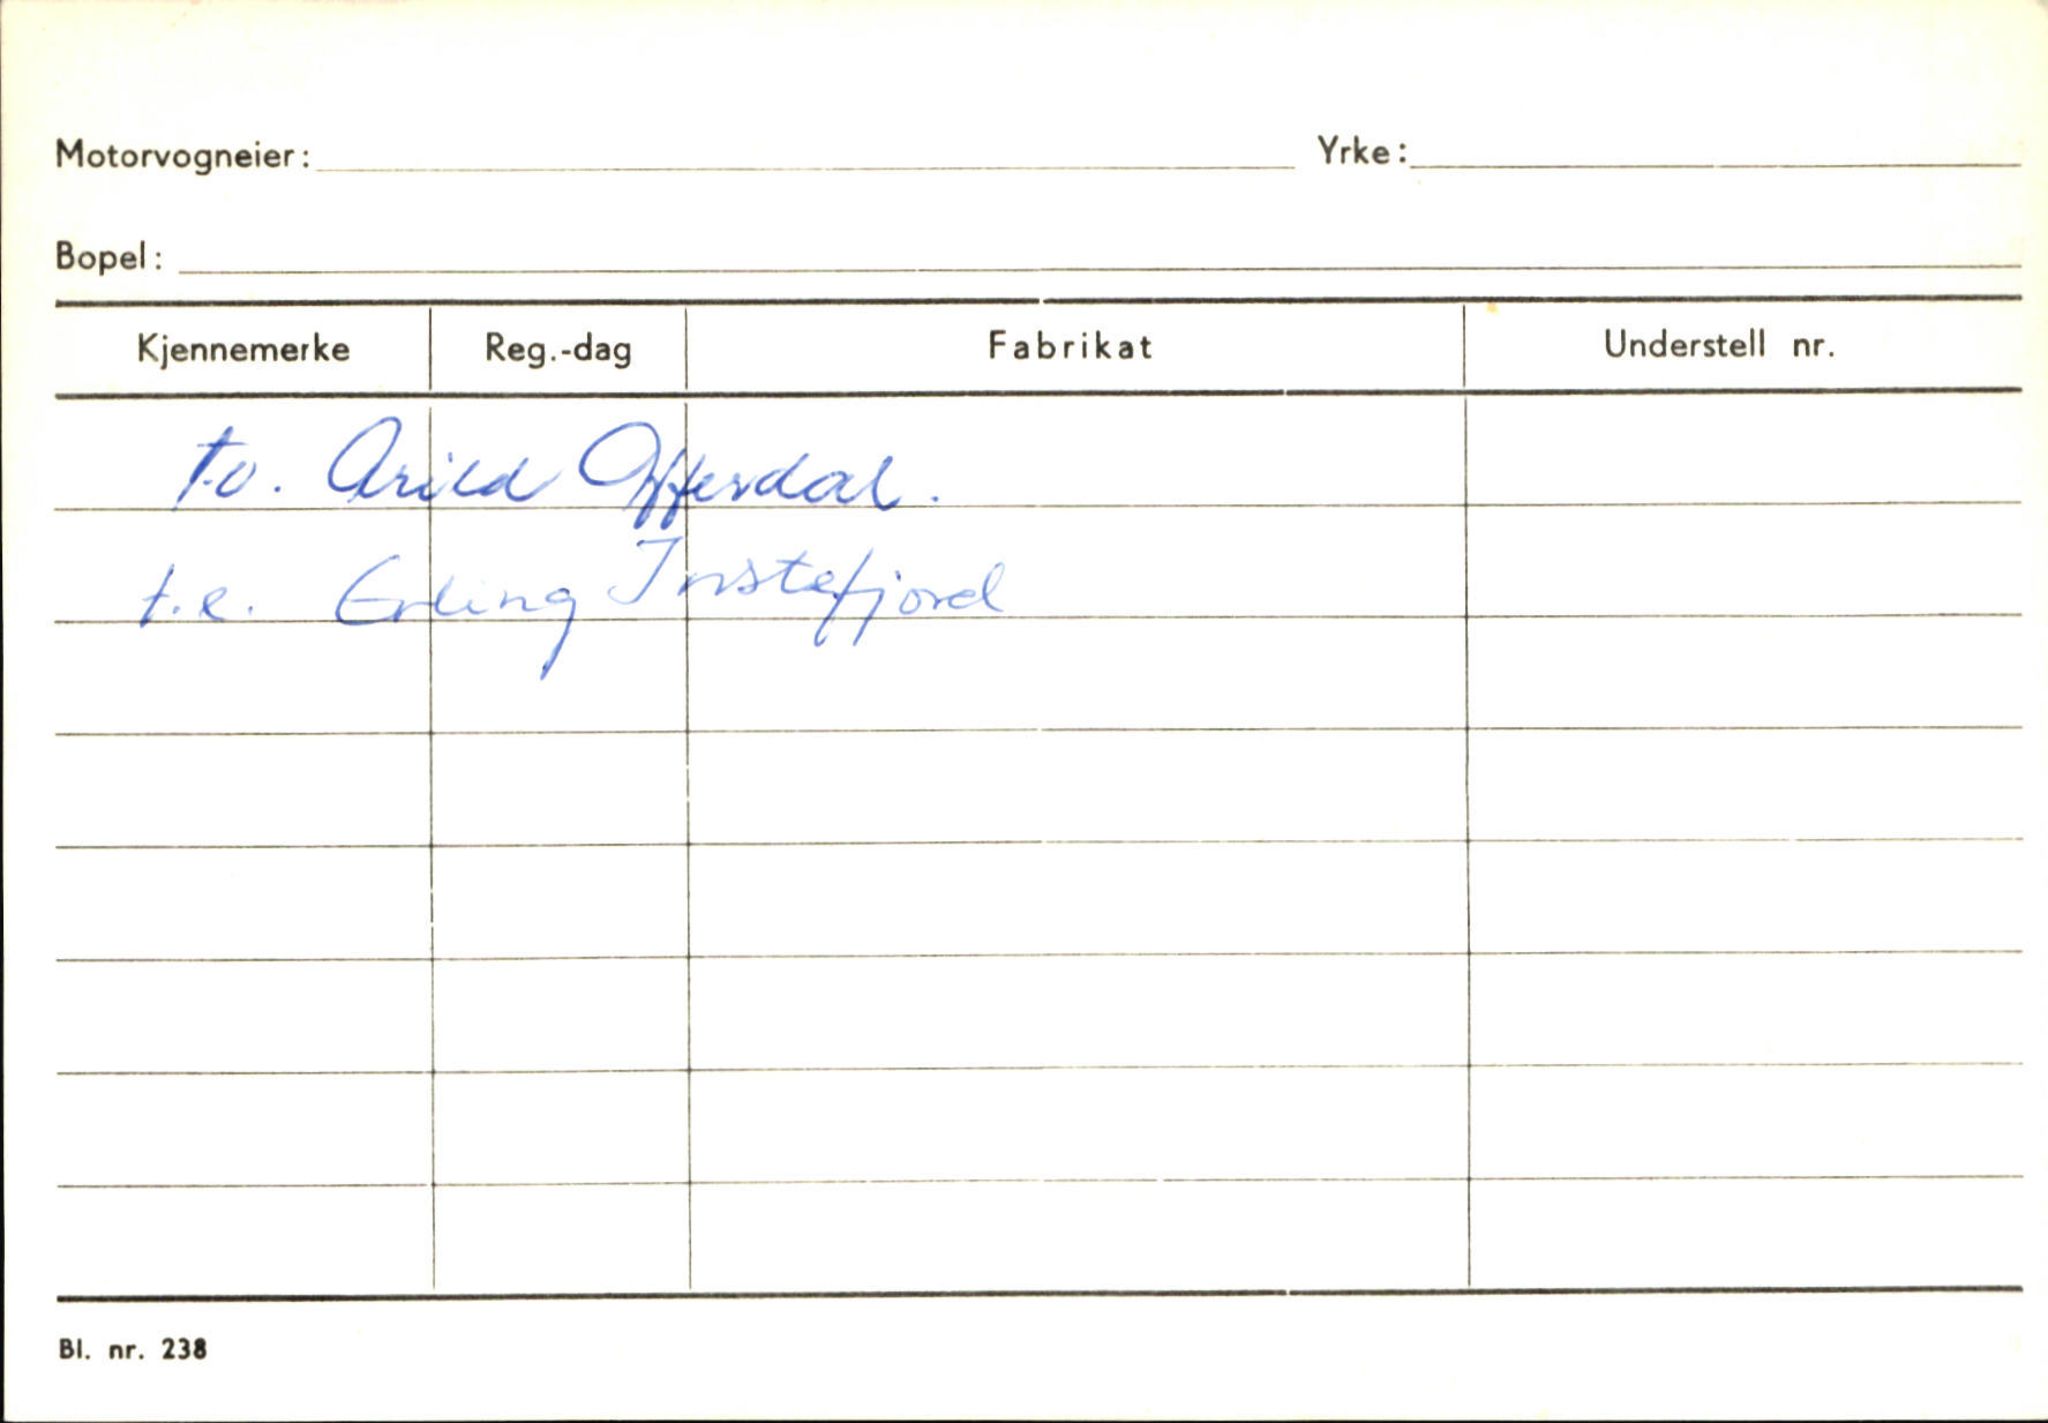 Motorvogneier: Yrke:
Bopel:
Kjennemerke Reg.-dag Fabrikat Understell nr.
t.o. Arild Offerdal.
t.e. Erling Instefjord
Bl. nr. 238